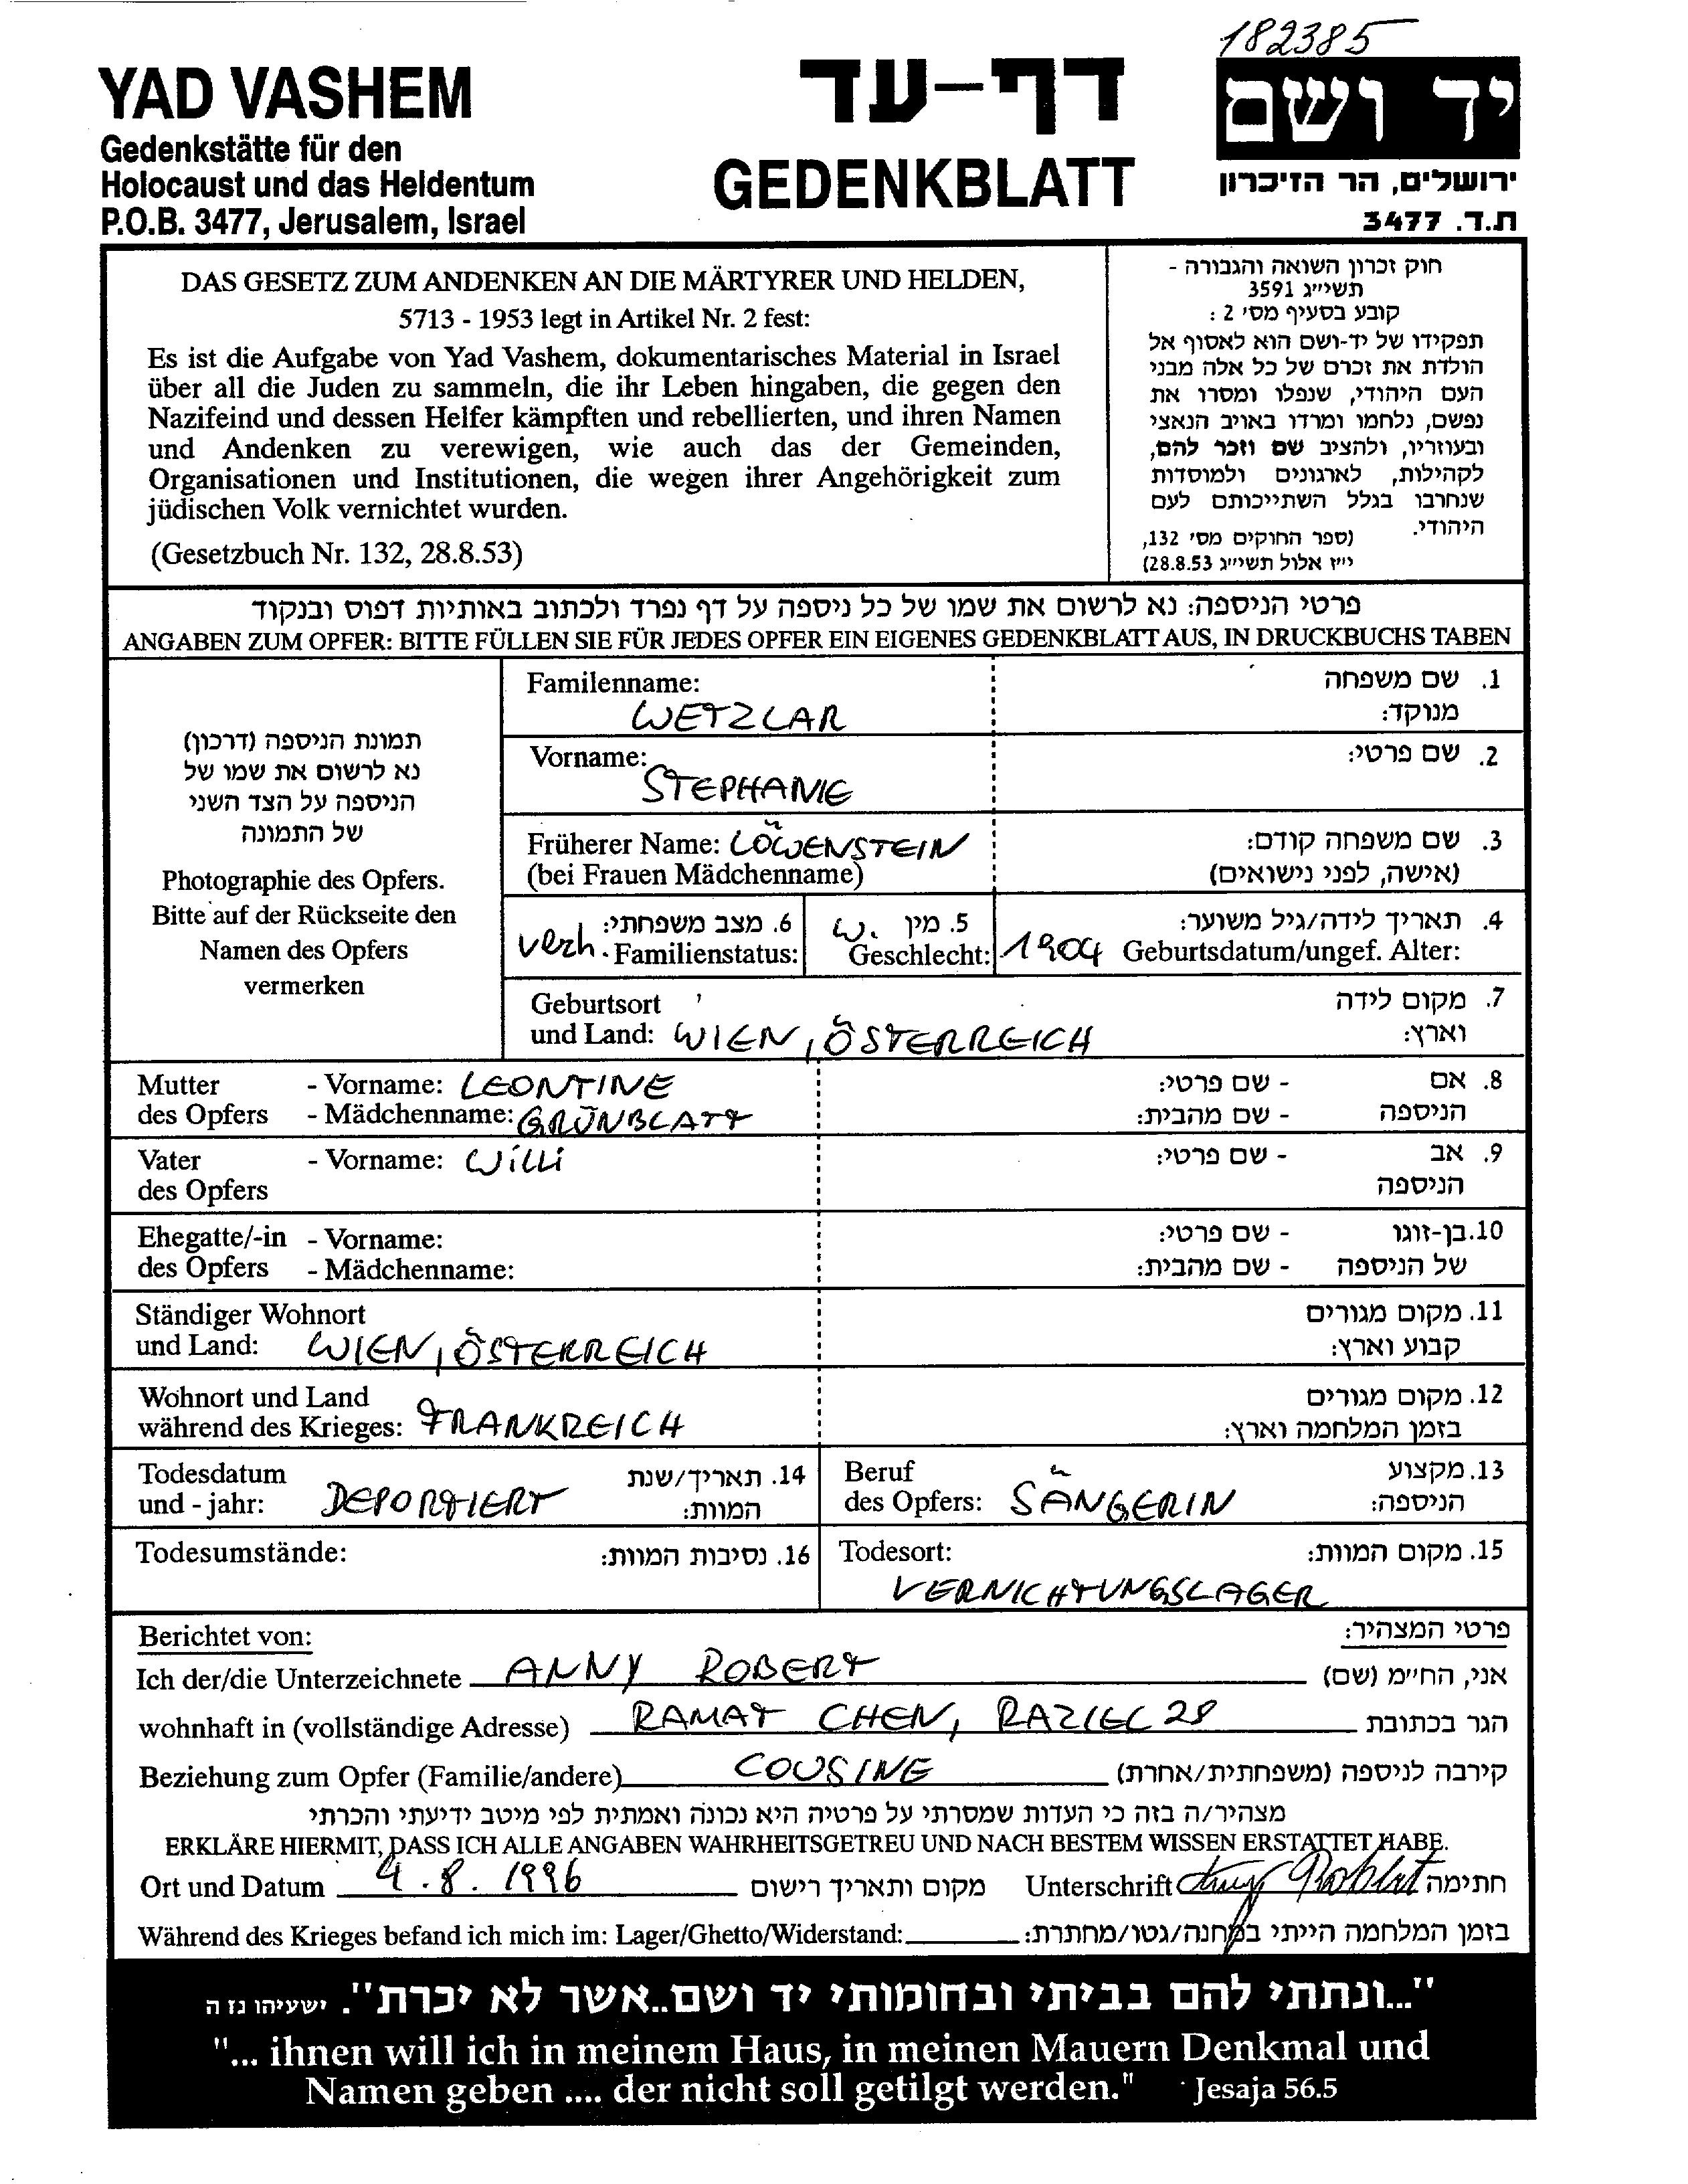 182385
YAD VASHEM
Gedenkstätte für den
Holocaust und das Heldentum
P.O.B. 3477, Jerusalem, Israel
דף-עד
GEDENKBLATT
יד ושם
ירושלים, הר הזיכרון
ת.ד. 3477
DAS GESETZ ZUM ANDENKEN AN DIE MÄRTYRER UND HELDEN,
5713 - 1953 legt in Artikel Nr. 2 fest:
Es ist die Aufgabe von Yad Vashem, dokumentarisches Material in Israel
über all die Juden zu sammeln, die ihr Leben hingaben, die gegen den
Nazifeind und dessen Helfer kämpften und rebellierten, und ihren Namen
und Andenken zu verewigen, wie auch das der Gemeinden,
Organisationen und Institutionen, die wegen ihrer Angehörigkeit zum
jüdischen Volk vernichtet wurden.
(Gesetzbuch Nr. 132, 28.8.53)
חוק זכרון השואה והגבורה -
תשי״ג 3591
קובע בסעיף מס׳ 2 :
תפקידו של יד-ושם הוא לאסוף אל
הולדת את זכרם של כל אלה מבני
העם היהודי, שנפלו ומסרו את
נפשם, נלחמו ומרדו באויב הנאצי
ובעוזריו, ולהציב שם וזכר להם,
לקהילות, לארגונים ולמוסדות
שנחרבו בגלל השתייכותם לעם
היהודי.
(ספר החוקים מס׳ 132,
י״ז אלול תשי״ג 28.8.53)
פרטי הניספה: נא לרשום את שמו של כל ניספה על דף נפרד ולכתוב באותיות דפוס ובנקוד
ANGABEN ZUM OPFER: BITTE FÜLLEN SIE FÜR JEDES OPFER EIN EIGENES GEDENKBLATT AUS, IN DRUCKBUCHS TABEN
תמונת הניספה (דרכון)
נא לרשום את שמו של
הניספה על הצד השני
של התמונה
Photographie des Opfers.
Bitte auf der Rückseite den
Namen des Opfers
vermerken
Familenname: 1. שם משפחה
WETZLAR מנוקד:
Vorname: 2. שם פרטי:
STEPHANIE
Früherer Name: LÖWENSTEIN 3. שם משפחה קודם:
(bei Frauen Mädchenname) (אישה, לפני נישואים)
6. מצב משפחתי: 5. מין 4. תאריך לידה/גיל משוער:
verh. Familienstatus: w. Geschlecht: 1904 Geburtsdatum/ungef. Alter:
Geburtsort 7. מקום לידה
und Land: WIEN, ÖSTERREICH וארץ:
Mutter - Vorname: LEONTINE - שם פרטי: 8. אם
des Opfers - Mädchenname: GRÜNBLATT - שם מהבית: הניספה
Vater - Vorname: Willi - שם פרטי: 9. אב
des Opfers הניספה
Ehegatte/-in - Vorname: - שם פרטי: 10.בן-זוגו
des Opfers - Mädchenname: - שם מהבית: של הניספה
Ständiger Wohnort 11. מקום מגורים
und Land: WIEN, ÖSTERREICH קבוע וארץ:
Wohnort und Land 12. מקום מגורים
während des Krieges: FRANKREICH בזמן המלחמה וארץ:
Todesdatum 14. תאריך/שנת
und - jahr: DEPORTIERT המוות:
Beruf 13.מקצוע
des Opfers: SÄNGERIN הניספה:
Todesumstände: 16. נסיבות המוות:
Todesort: 15. מקום המוות:
VERNICHTUNGSLAGER
Berichtet von: פרטי המצהיר:
Ich der/die Unterzeichnete ANNY ROBERT אני, החי״מ (שם)
wohnhaft in (vollständige Adresse) RAMAT CHEN, RAZIEL 28 הגר בכתובת
Beziehung zum Opfer (Familie/andere) COUSINE קירבה לניספה (משפחתית/אחרת)
מצהיר/ה בזה כי העדות שמסרתי על פרטיה היא נכונה ואמתית לפי מיטב ידיעתי והכרתי
ERKLÄRE HIERMIT, DASS ICH ALLE ANGABEN WAHRHEITSGETREU UND NACH BESTEM WISSEN ERSTATTET HABE.
Ort und Datum 4.8.1996 מקום ותאריך רישום Unterschrift חתימה
Während des Krieges befand ich mich im: Lager/Ghetto/Widerstand: בזמן המלחמה הייתי במחנה/גטו/מחתרת:
"...ונתתי להם בביתי ובחומותי יד ושם..אשר לא יכרת". ישעיהו נז ה
"... ihnen will ich in meinem Haus, in meinen Mauern Denkmal und
Namen geben .... der nicht soll getilgt werden." Jesaja 56.5